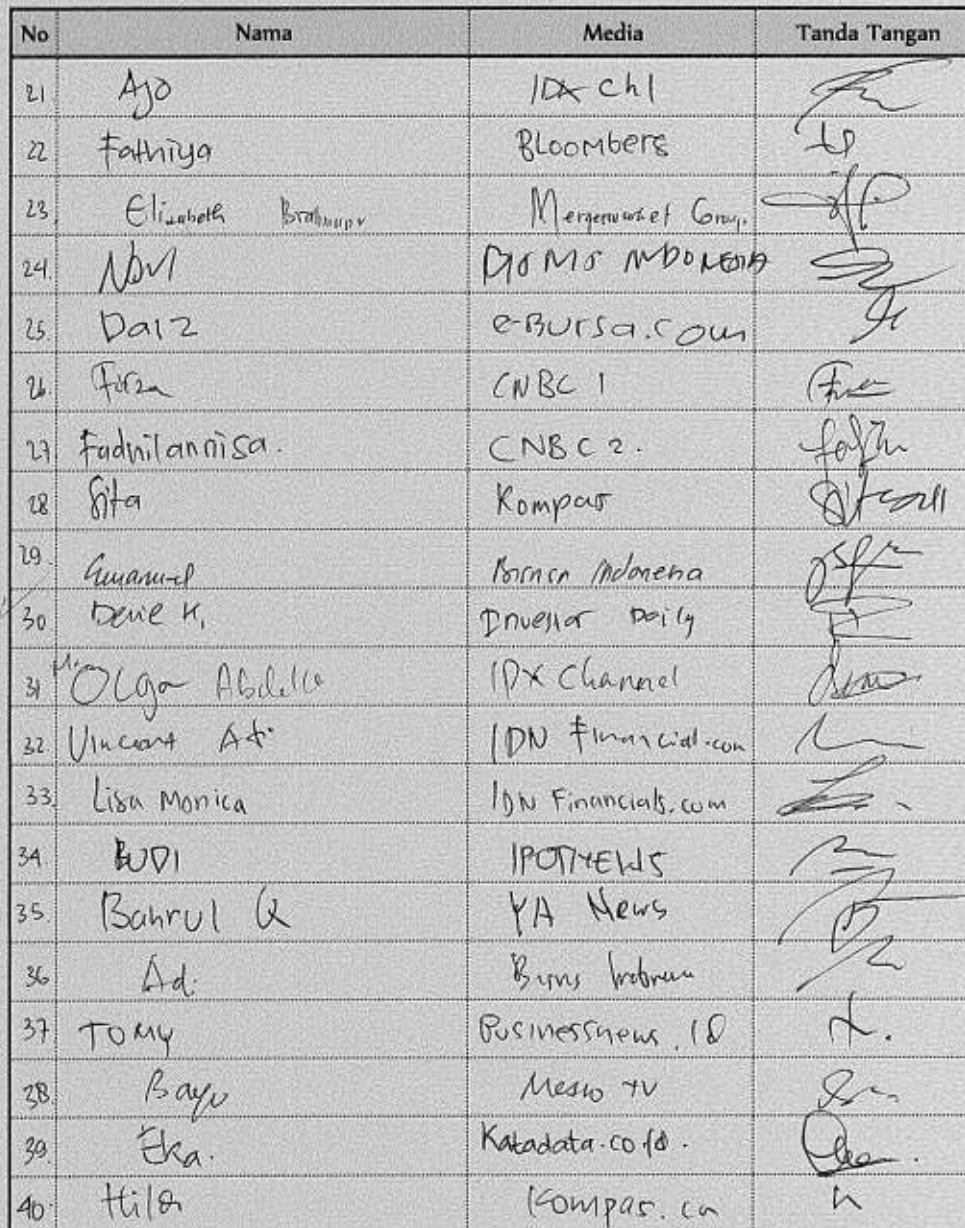 No Nama Media Tanda Tangan
21 Ajo IDX Ch1
22 Fathiya Bloomberg
23. Elizabeth Mergermarket Group.
24. Novi INDONESIA
25. Daiz e-Bursa.com
26. Firza CNBC 1
27 Fadhilannisa. CNBC 2.
28 Sita Kompas
29. Emanuel Bisnis Indonesia
30 Devie K. Investor Daily
31 Olga Abdella IDX Channel
32. Vincent Ad. IDN Financial.com
33. Lisa Monica IDN Financials.com
34. BUDI IPOTNEWS
35. Bahrul Q YA News
36 Ad. Bisnis Indonesia
37 TOMY Businessnews.id
38. Bayu Metro TV
39. Eka. Katadata.co.id.
40. Hilda Kompas.com